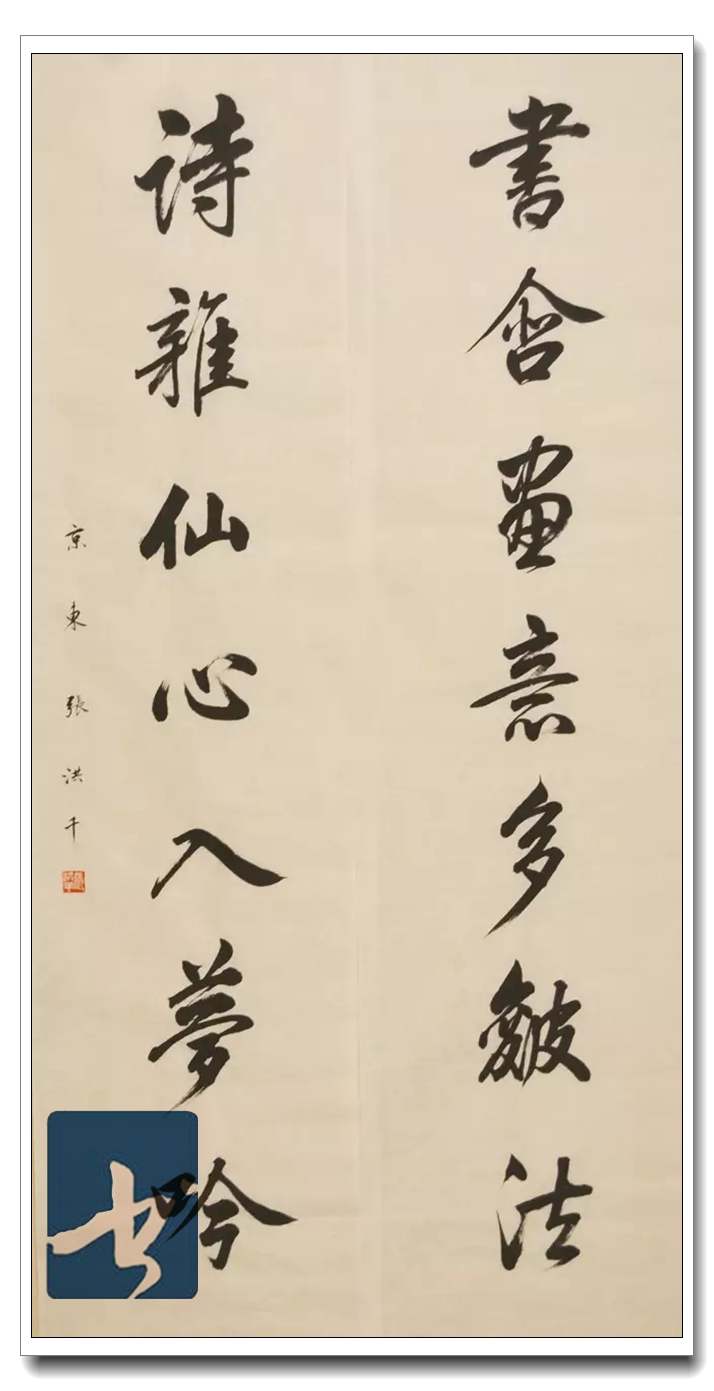 書含畫意多皴法
詩雜仙心入夢吟
京東張洪千